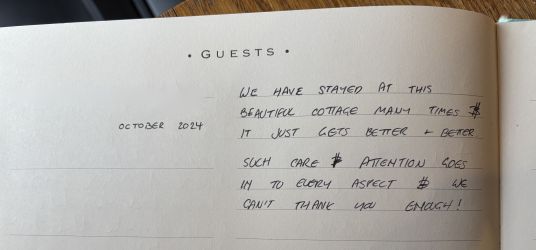 • GUESTS •
OCTOBER 2024
WE HAVE STAYED AT THIS
BEAUTIFUL COTTAGE MANY TIMES &
IT JUST GETS BETTER + BETTER
SUCH CARE & ATTENTION GOES
IN TO EVERY ASPECT & WE
CAN'T THANK YOU ENOUGH!